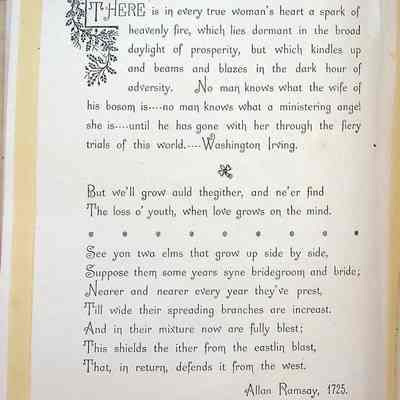 THERE is in every true woman's heart a spark of
heavenly fire, which lies dormant in the broad
daylight of prosperity, but which kindles up
and beams and blazes in the dark hour of
adversity. No man knows what the wife of
his bosom is----no man knows what a ministering angel
she is----until he has gone with her through the fiery
trials of this world.----Washington Irving.
But we'll grow auld thegither, and ne'er find
The loss o' youth, when love grows on the mind.
See yon twa elms that grow up side by side,
Suppose them some years syne bridegroom and bride;
Nearer and nearer every year they've prest,
Till wide their spreading branches are increast.
And in their mixture now are fully blest;
This shields the ither from the eastlin blast,
That, in return, defends it from the west.
Allan Ramsay, 1725.